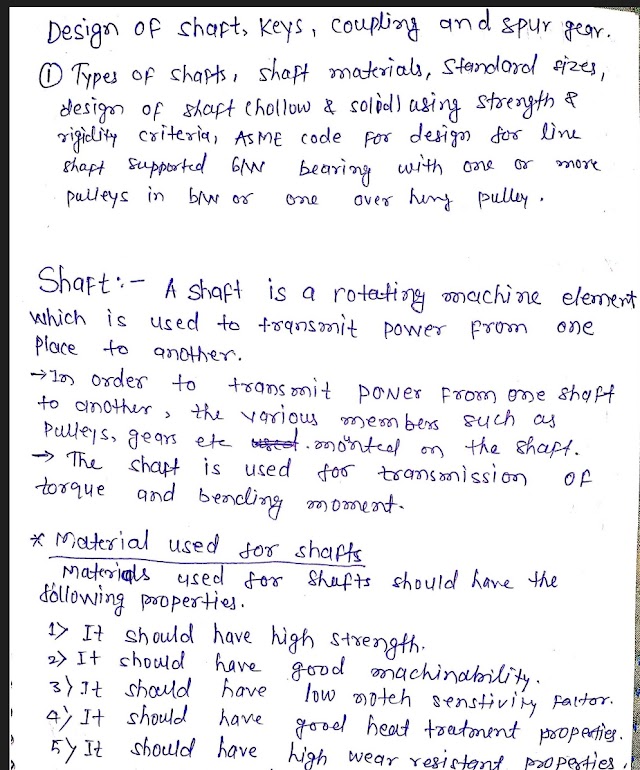 Design of shaft, Keys, coupling and spur gear.
① Types of shafts, shaft materials, Standard sizes,
design of shaft (hollow & solid) using strength &
rigidity criteria, ASME code for design for line
shaft supported b/w bearing with one or more
pulleys in b/w or one over hung pulley.
Shaft:- A shaft is a rotating machine element
which is used to transmit power from one
place to another.
→ In order to transmit power from one shaft
to another, the various members such as
pulleys, gears etc used. monted on the shaft.
→ The shaft is used for transmission of
torque and bending moment.
* Material used for shafts
Materials used for shafts should have the
following properties.
1> It should have high strength.
2> It should have good machinability.
3> It should have low notch senstivity factor.
4> It should have good heat tratment properties.
5> It should have high wear resistant properties.